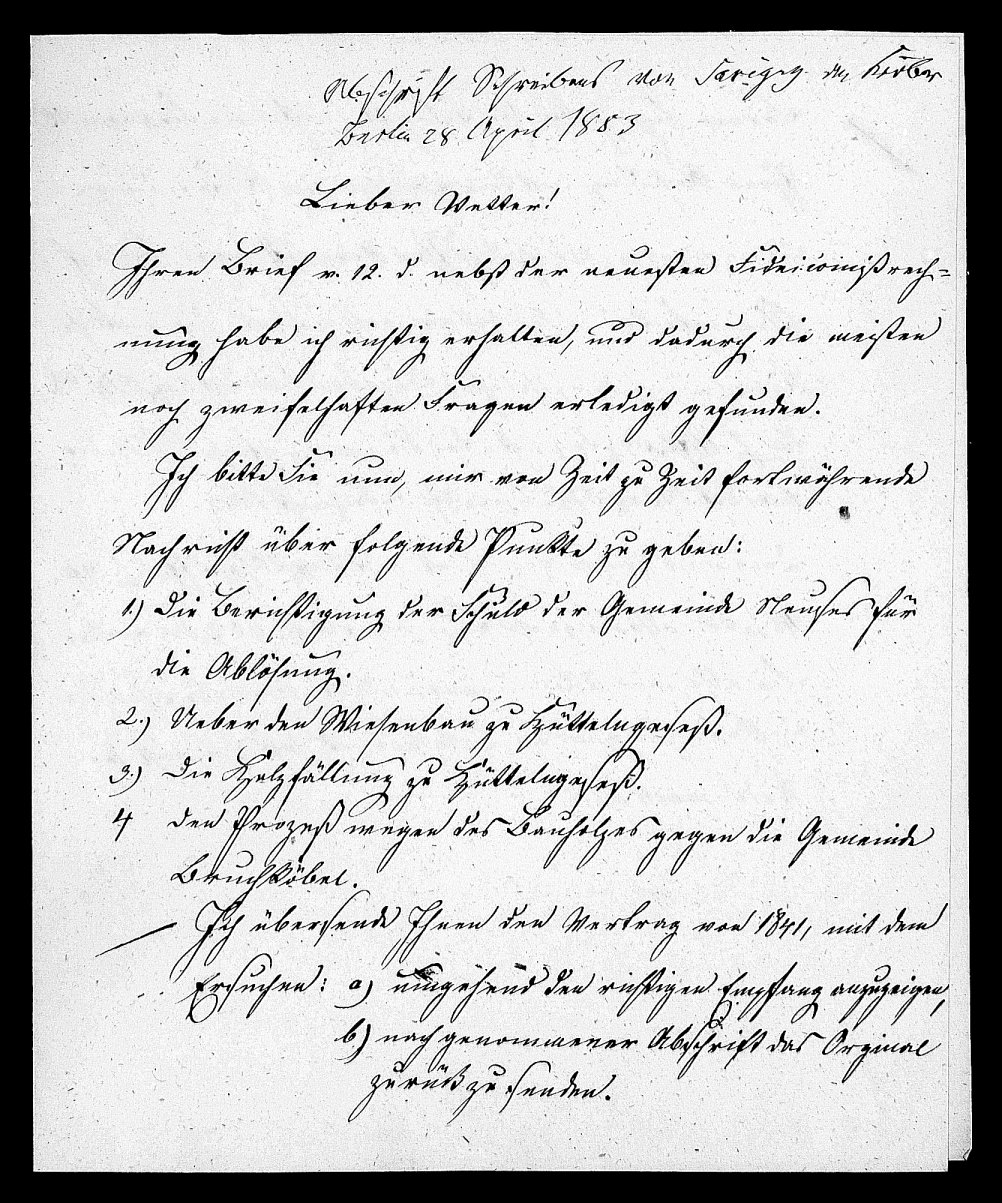 Abschrift Schreibens von Savigny an Körber
Berlin 28 April 1853
Lieber Vetter!
Ihren Brief v. 12. d. nebst der neuesten Fideicomißrech=
nung habe ich richtig erhalten, und dadurch die meisten
noch zweifelhaften Fragen erledigt gefunden.
Ich bitte Sie nun, mir von Zeit zu Zeit fortwährende
Nachricht über folgende Punkte zu geben:
1.) Die Berichtigung der Schuld der Gemeinde Neuses für
die Ablösung.
2.) Ueber den Wiesenbau zu Hüttelngeseß.
3.) Die Holzfällung zu Hüttelngeseß.
4 den Prozeß wegen des Bauholzes gegen die Gemeinde
Bruchköbel.
Ich übersende Ihnen den Vertrag von 1841, mit dem
Ersuchen: a) umgehend den richtigen Empfang anzuzeigen,
b) nach genommener Abschrift das Orginal
zurück zu senden.